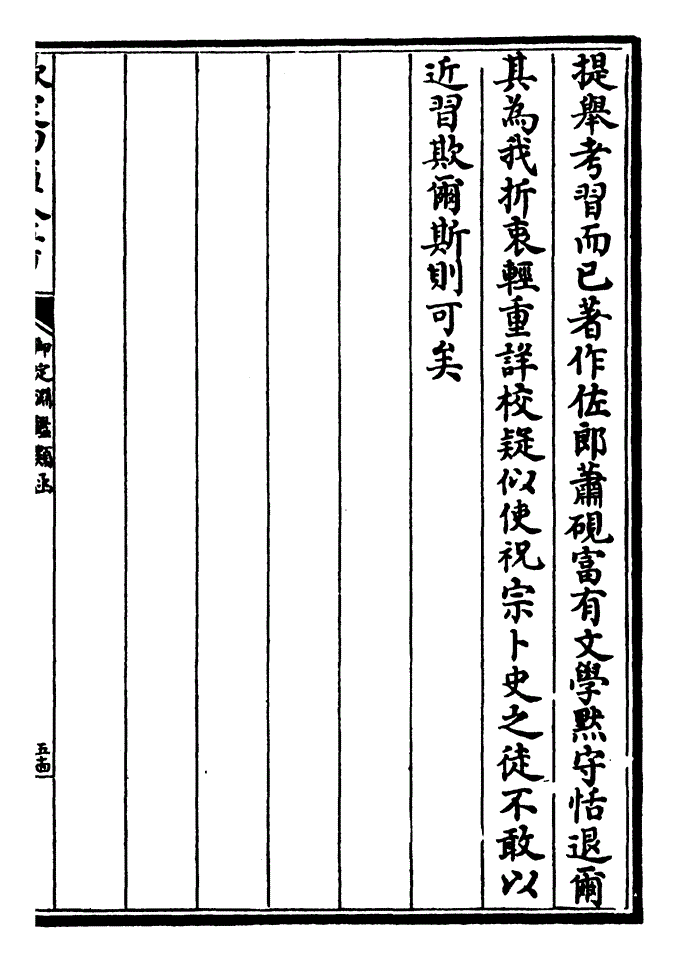 提舉考習而已著作佐郎蕭硯富有文學黙守恬退爾
其為我折衷輕重詳校疑似使祝宗卜史之徒不敢以
近習欺爾斯則可矣
欽定四庫全書
御定淵鑑類函
五十四